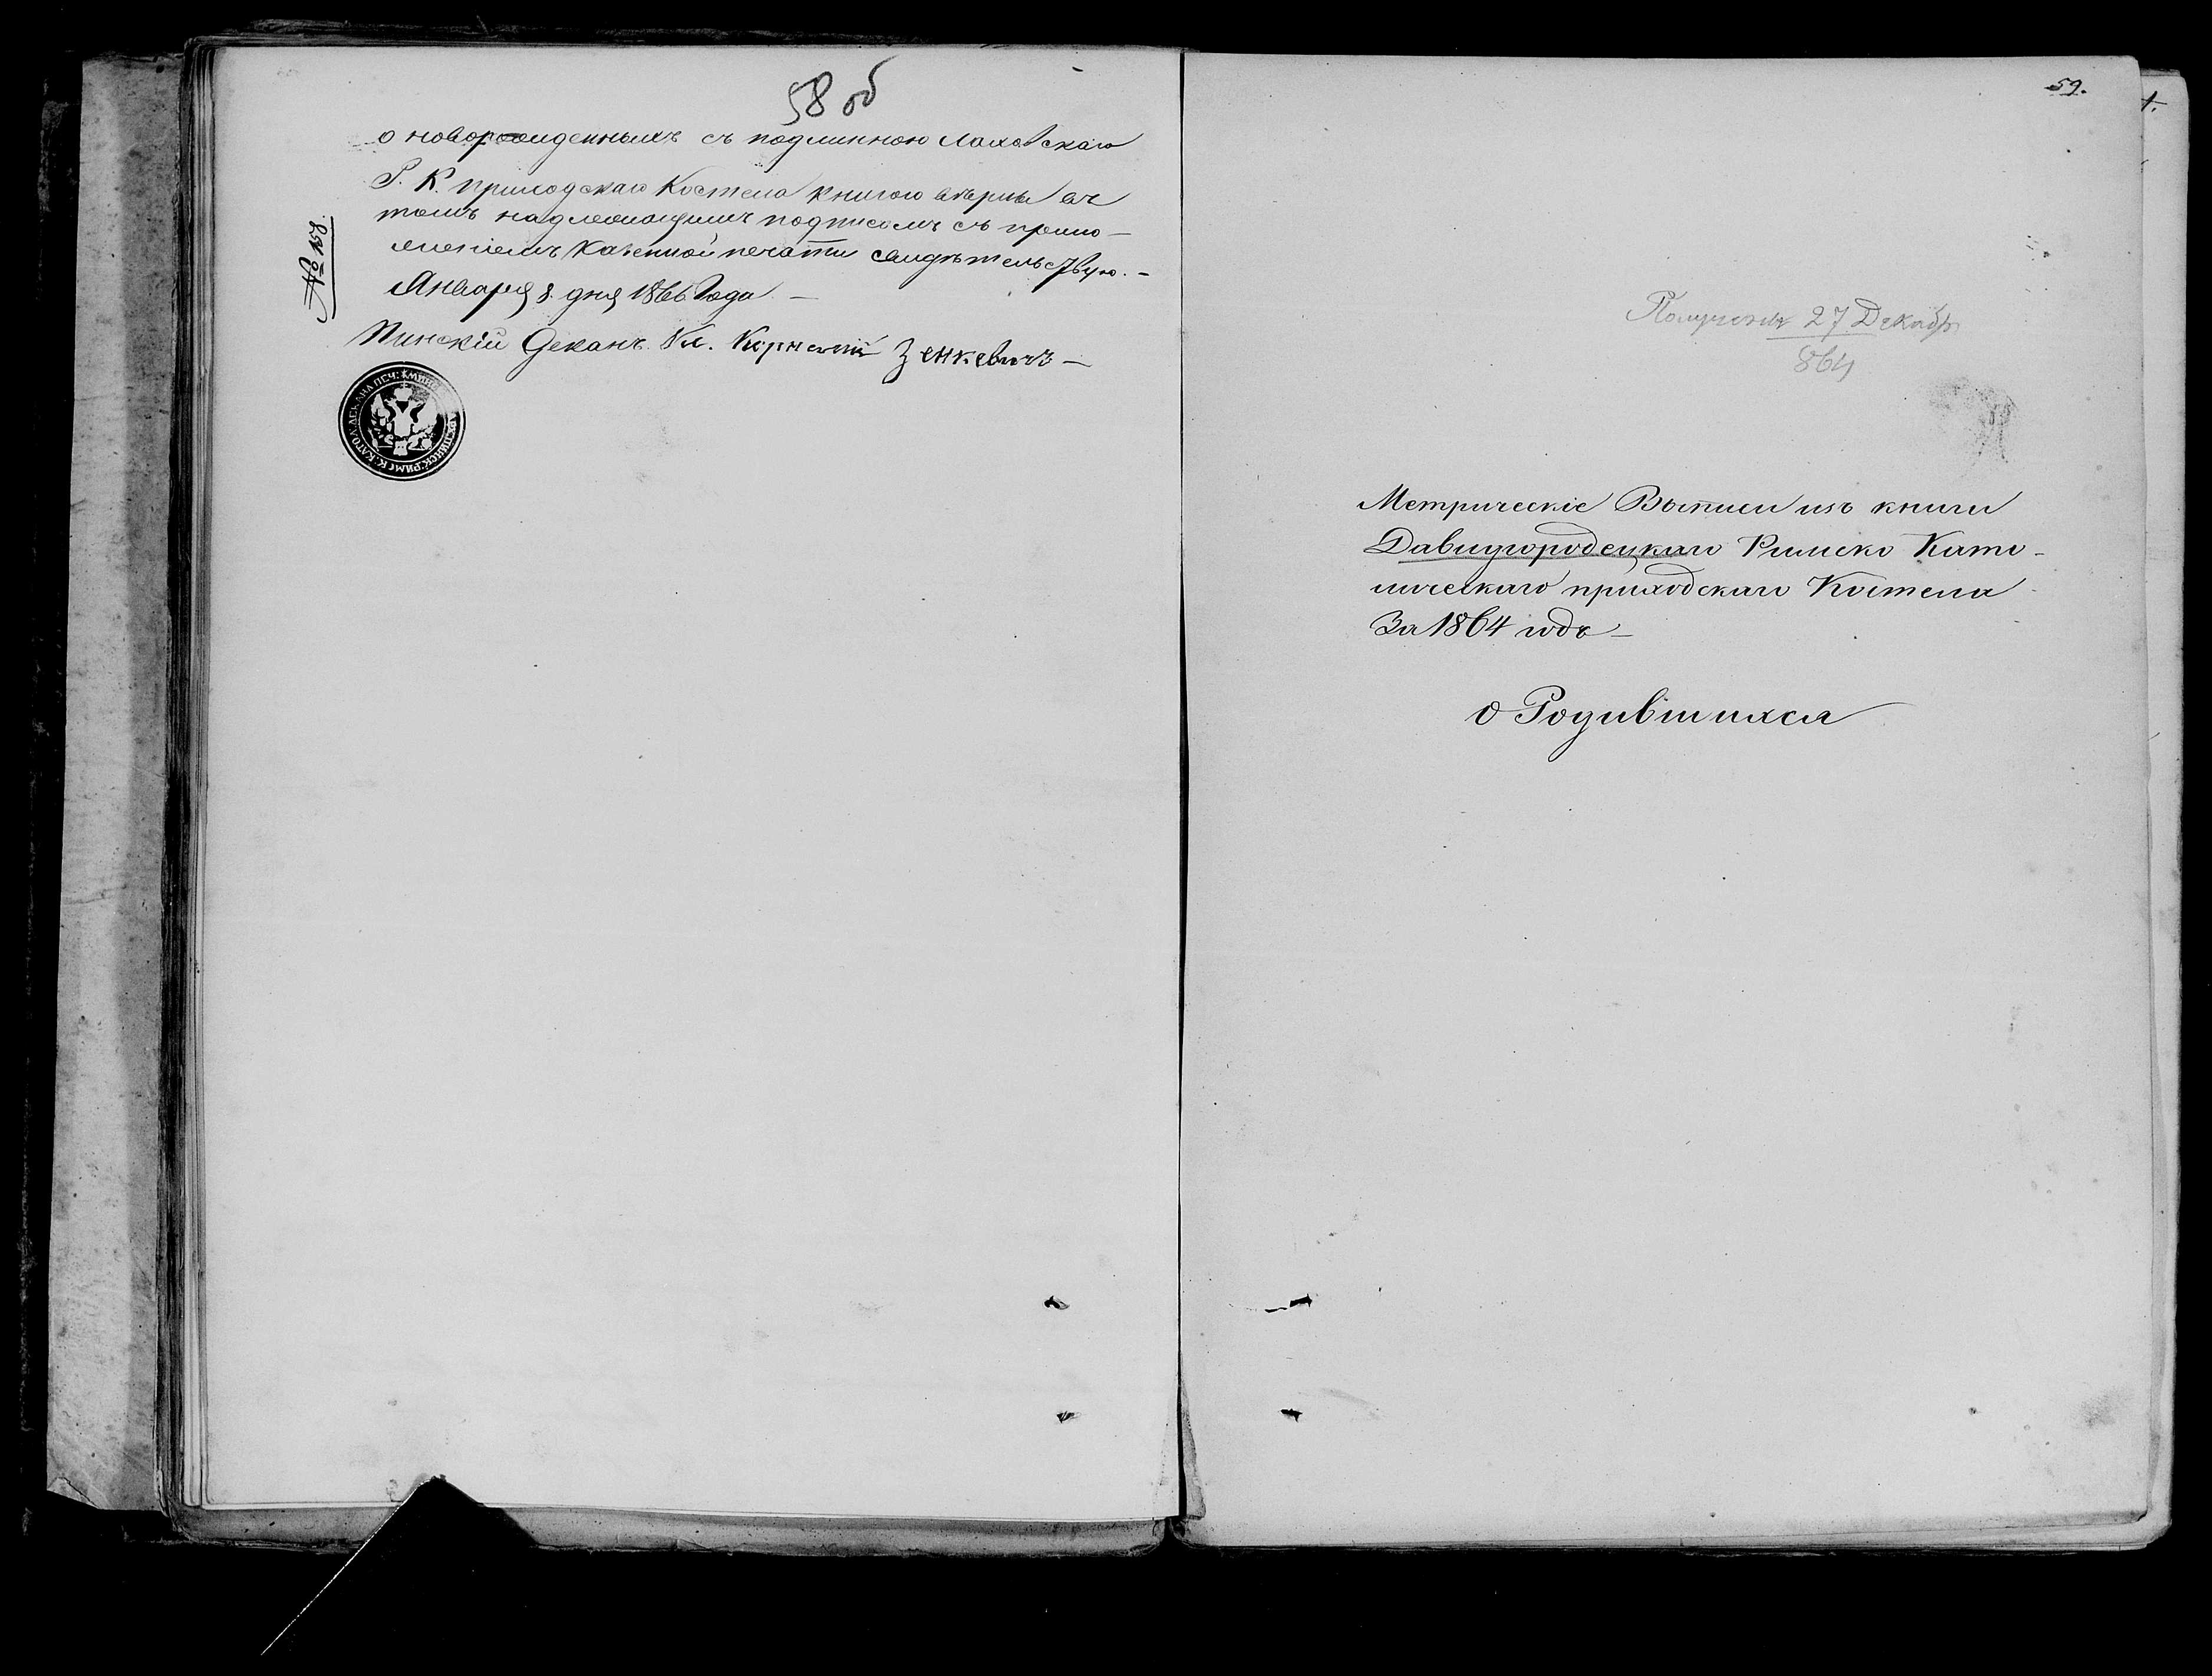 58 об
о новорожденныхъ съ подлинною Лаховскаго
Р. К. приходскаго Костела книгою вѣрны въ
томъ надлежащимъ подписомъ съ прило-
женіемъ Казенной печати свидѣтельствую. -
Января 8 дня 1866 Года. —
Пинскій Деканъ Кс. Корнелій Зенкевичъ —
№ 158
59.
1.
Полученъ 27 Декабр
864
Метрическіе Выписи изъ книги
Давидгородецкаго Римско Като-
лическаго приходскаго Костела
За 1864 годъ —
о Родившихся